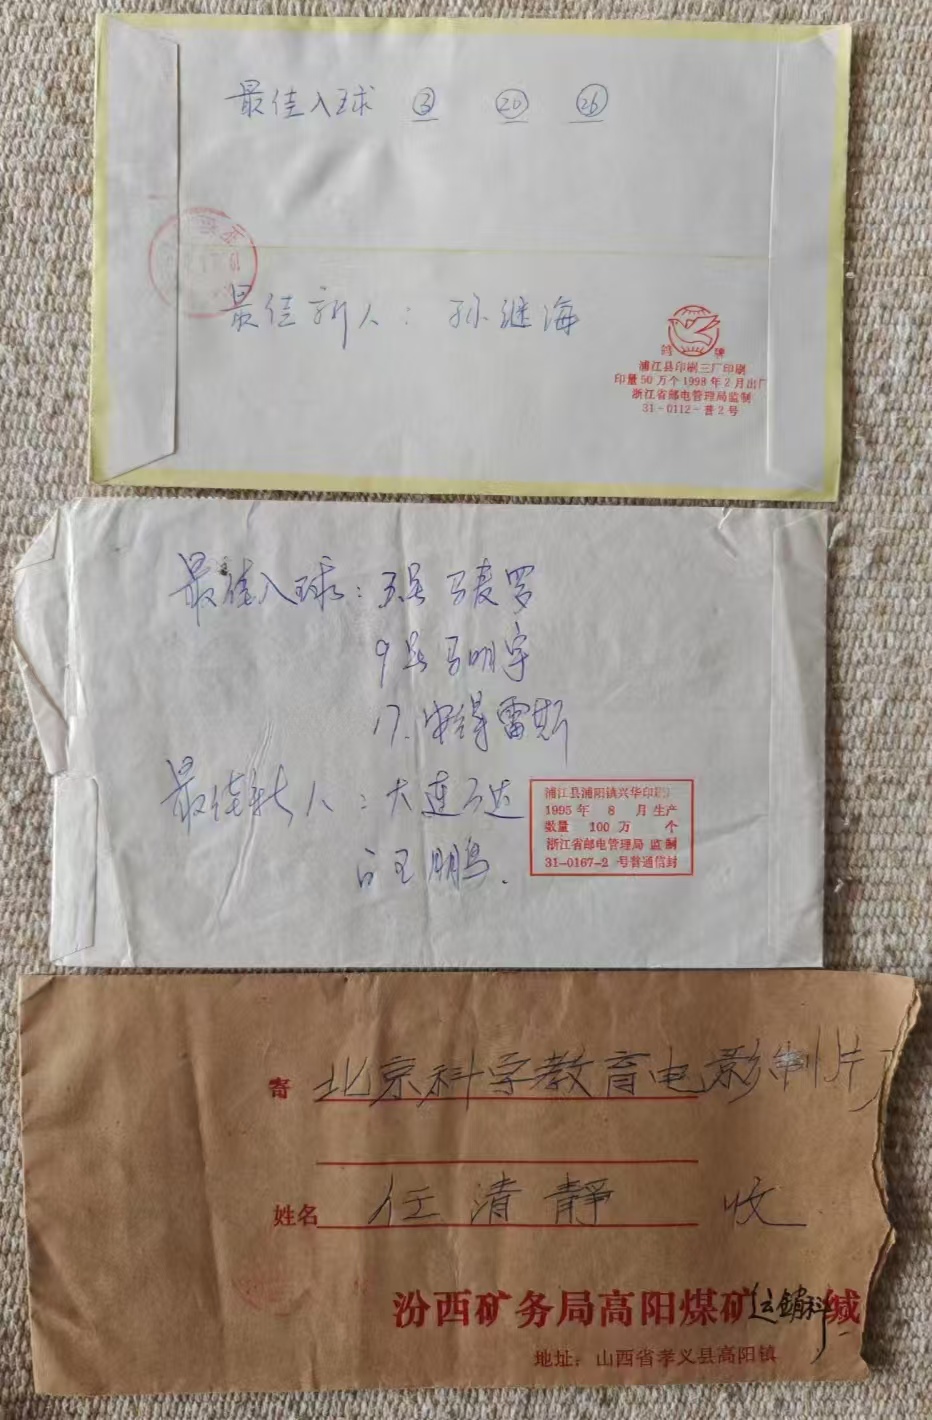 最佳入球 ③ ⑳ ㉖
最佳新人：孙继海
鸽 牌
浦江县印刷三厂印刷
印量50万个1998年2月出厂
浙江省邮电管理局监制
31-0112-普2号
最佳入球：3号 马麦罗
9号 马明宇
17. 安得雷斯
最佳新人：大连万达
的王鹏.
浦江县浦阳镇兴华印刷
1995年 8 月生产
数量 100万 个
浙江省邮电管理局 监制
31-0167-2 号普通信封
寄 北京科学教育电影制片
姓名 任清静 收
汾西矿务局高阳煤矿运销科缄
地址：山西省孝义县高阳镇